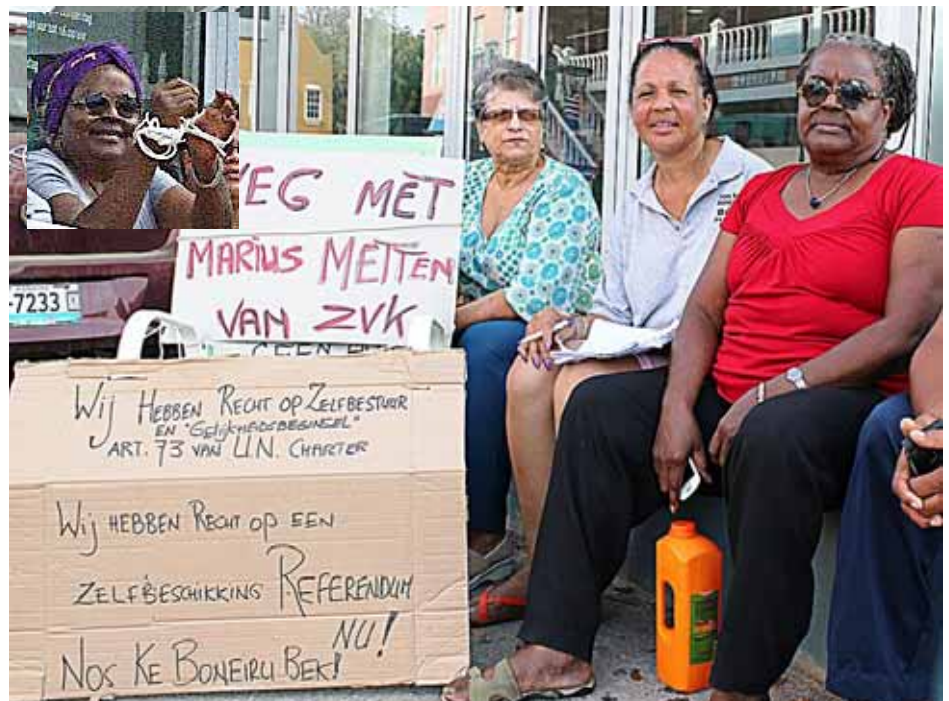 EG MET
MARIUS METTEN
VAN ZVK
GEEN
-7233
Wij HEBBEN RECHT OP ZELFBESTUUR
EN "GELIJKHEIDSBEGINSEL"
ART. 73 VAN U.N. CHARTER
Wij HEBBEN RECHT OP EEN
ZELFBESCHIKKING REFERENDUM
NU!
NOS KE BONEIRU BEK!